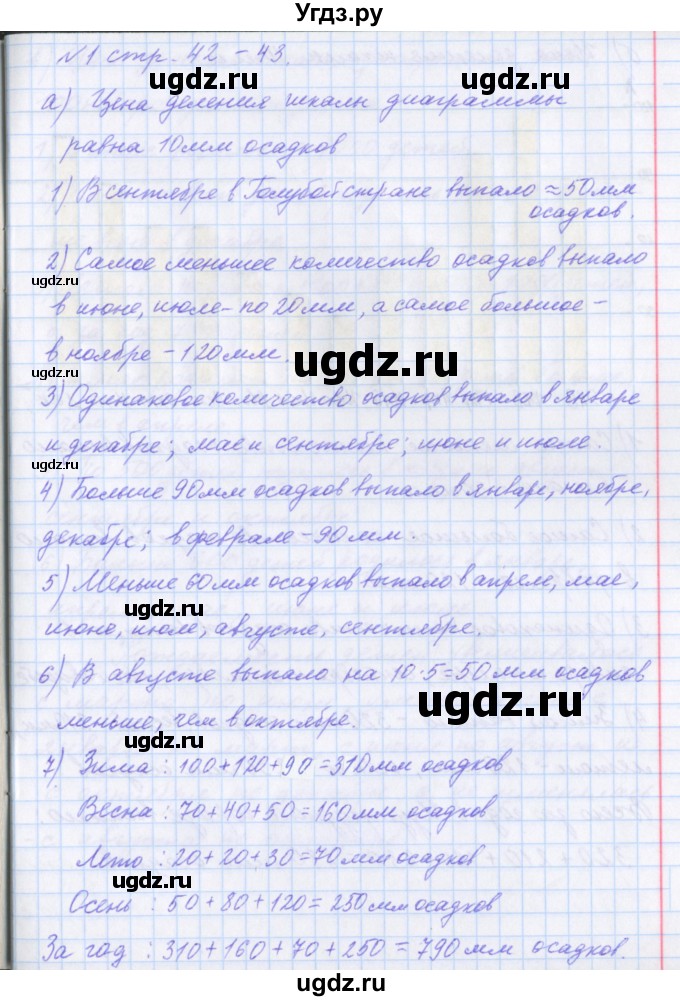 Угдз.ру
№1 стр. 42 - 43.
ugdz.ru
ugdz.ru
а) Цена деления шкалы диаграммы
равна 10мм осадков
1) В сентябре в Голубой стране выпало ≈50мм
осадков.
ugdz.ru
2) Самое меньшее количество осадков выпало
в июне, июле - по 20мм, а самое большое -
в ноябре - 120мм.
ugdz.ru
3) Одинаковое количество осадков выпало в январе
и декабре; мае и сентябре; июне и июле.
ugdz.ru
4) Больше 90мм осадков выпало в январе, ноябре,
декабре; в феврале - 90мм.
ugdz.ru
5) Меньше 60мм осадков выпало в апреле, мае,
ugdz.ru
июне, июле, августе, сентябре.
6) В августе выпало на 10·5=50мм осадков
ugdz.ru
меньше, чем в октябре.
ugdz.ru
7) Зима : 100+120+90=310мм осадков
Весна : 70+40+50=160мм осадков
Лето : 20+20+30=70мм осадков
ugdz.ru
Осень : 50+80+120=250мм осадков
За год : 310+160+70+250=790мм осадков.
ugdz.ru